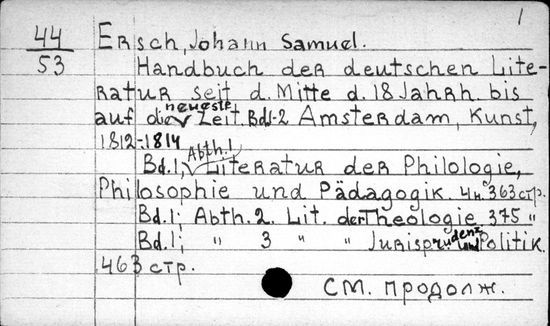 1
44
53
Ersch, Johann Samuel.
Handbuch der deutschen Lite-
ratur seit d. Mitte d. 18 Jahrh. bis
auf die neueste Zeit. Bd.1-2 Amsterdam, Kunst,
1812-1814
Bd.1, Abth.1 Literatur der Philologie,
Philosophie und Pädagogik. 363 стр.
Bd.1; Abth.2. Lit. der Theologie 375 "
Bd.1; " 3 " " Jurisprudenz und Politik.
463 стр.
См. продолж.